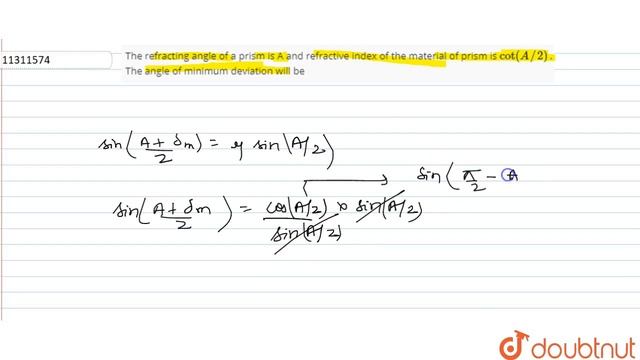 11311574
The refracting angle of a prism is A and refractive index of the material of prism is cot(A/2).
The angle of minimum deviation will be
sin(A + δm/2) = μ sin(A/2)
sin(π/2 - A
sin(A + δm/2) = cos(A/2)/sin(A/2) × sin(A/2)
doubtnut